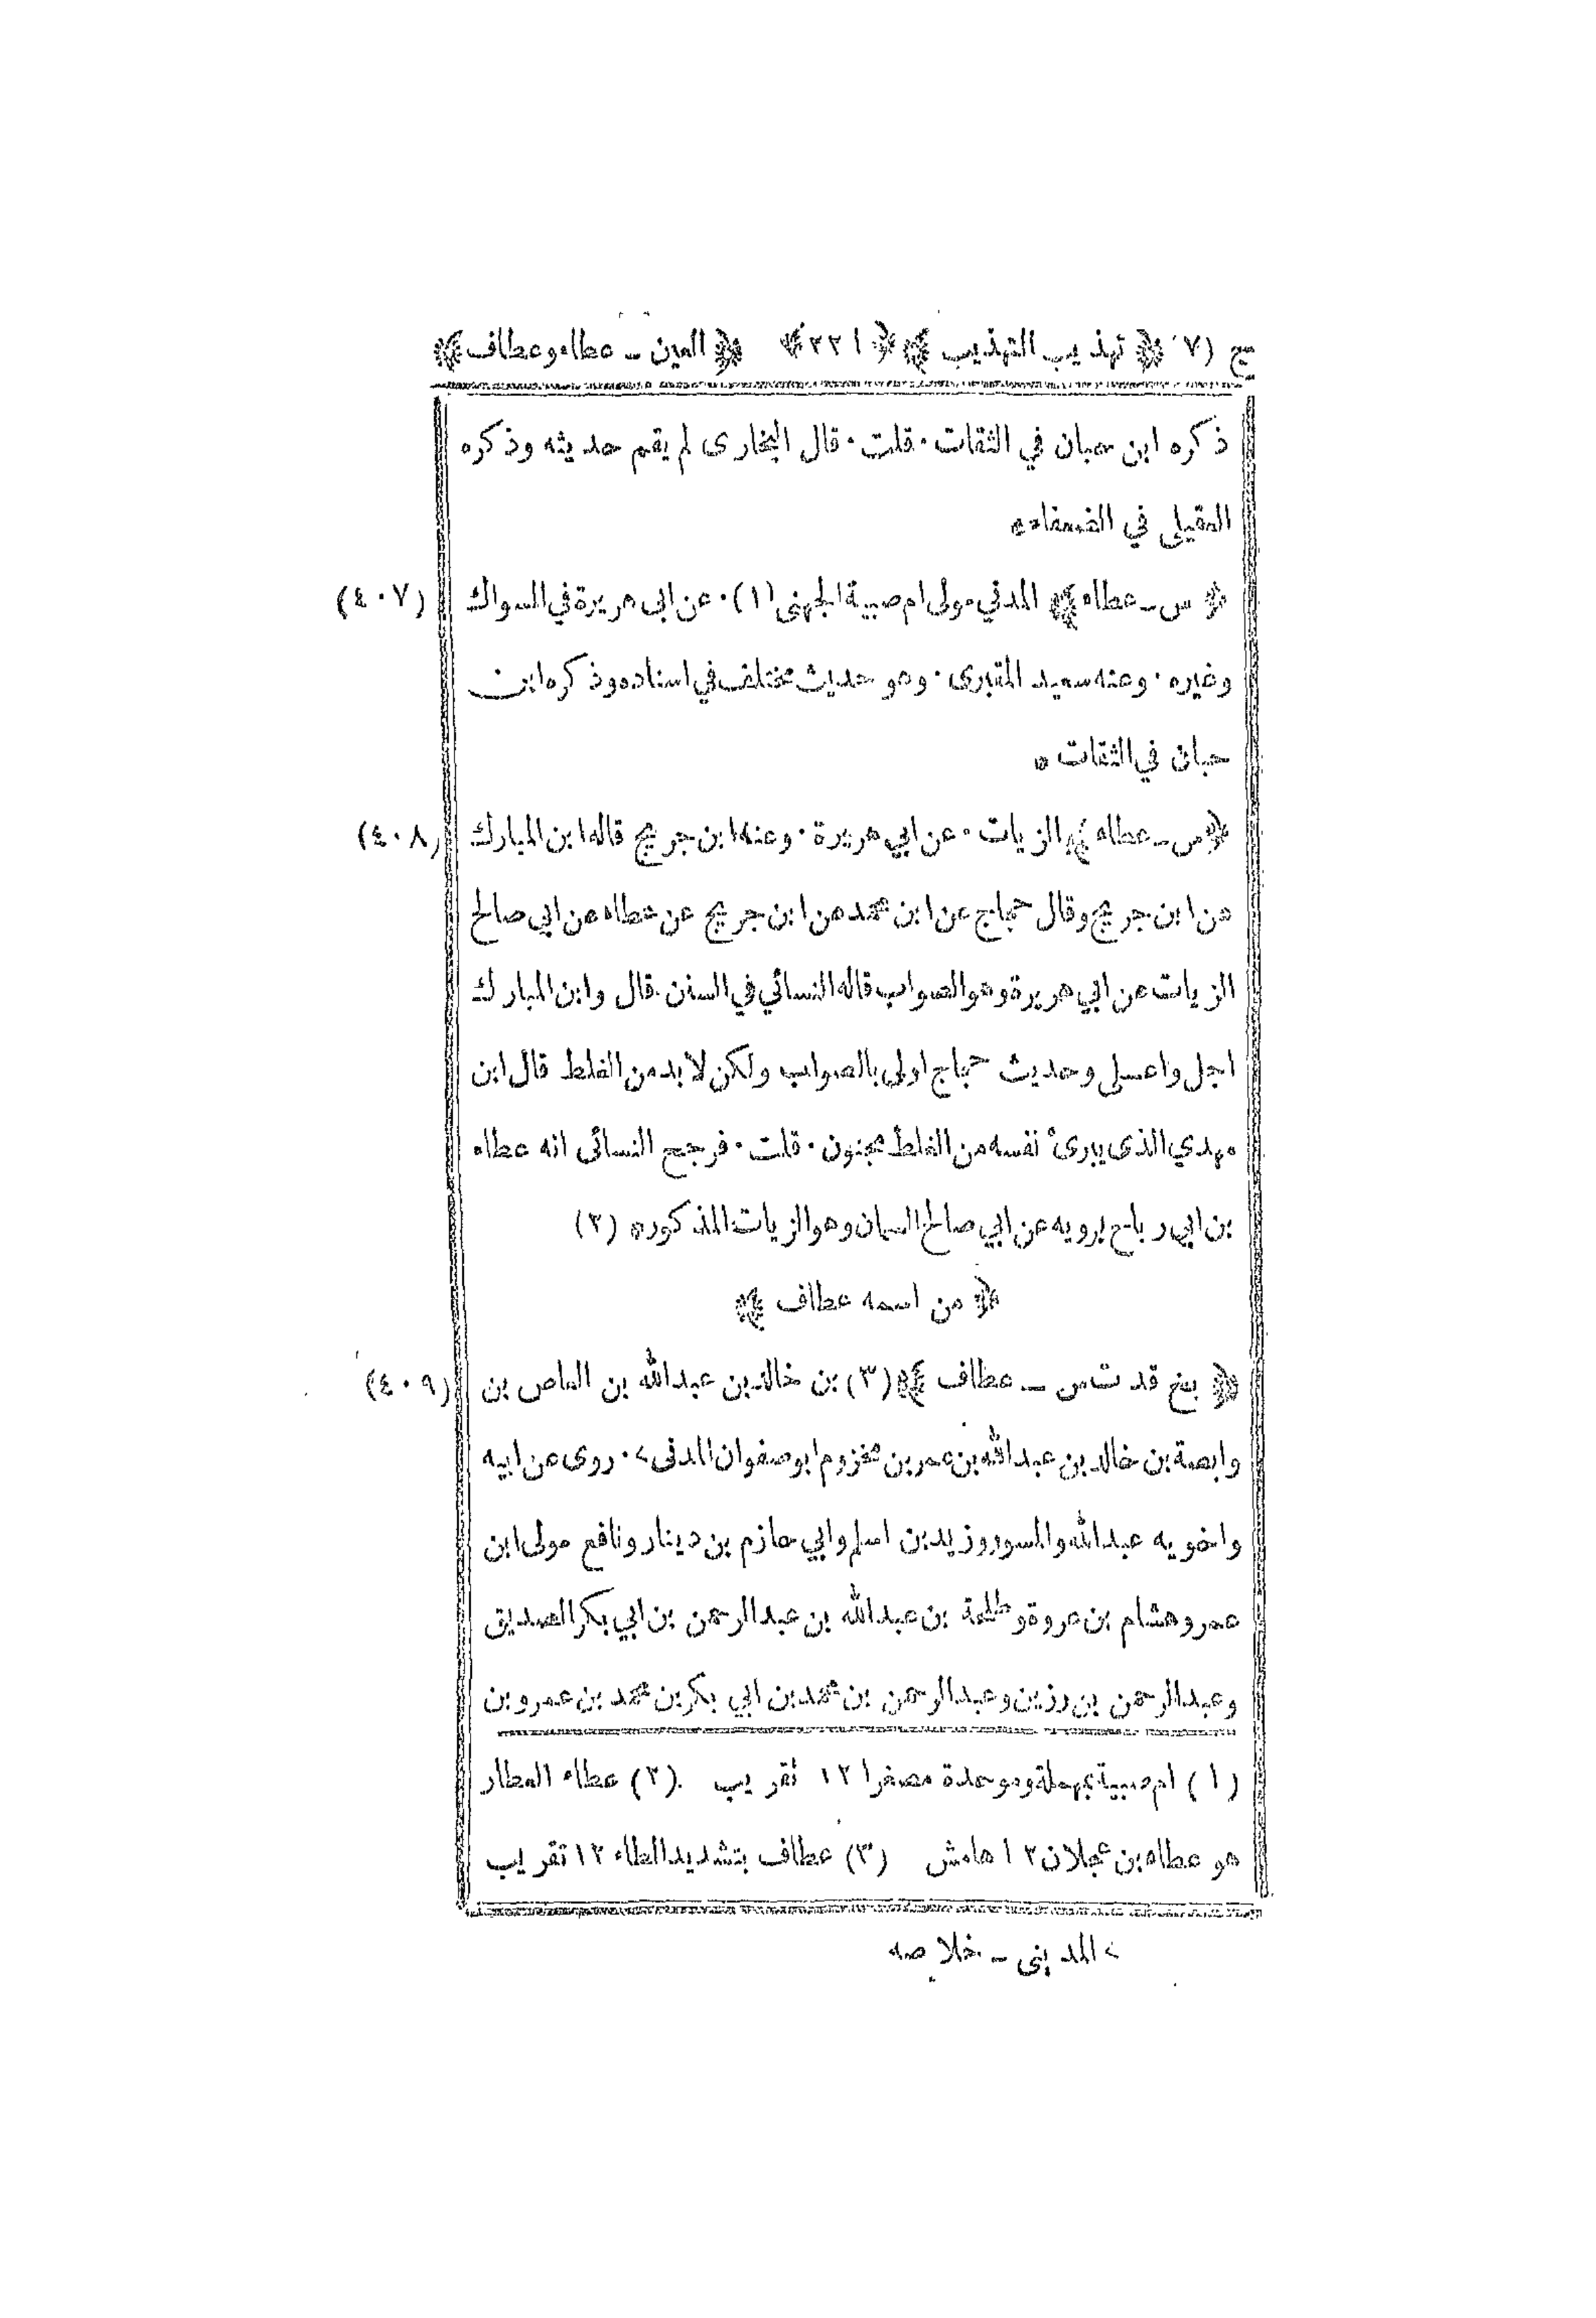 ج (٧) ﴿ تهذيب التهذيب ﴾ ﴿ ٢٢١ ﴾ ﴿ العين ـ عطاء وعطاف ﴾
ذكره ابن حبان في الثقات • قلت • قال البخارى لم يقم حديثه وذكره
العقيلى في الضعفاء *
﴿ س ـ عطاء ﴾ المدني مولى ام صبية الجهنى (١) • عن ابى هريرة في السواك (٤٠٧)
وغيره • وعنه سعيد المقبرى • وهو حديث مختلف في اسناده وذكره ابن
حبان في الثقات *
﴿ س ـ عطاء ﴾ الزيات • عن ابي هريرة • وعنه ابن جريج قاله ابن المبارك (٤٠٨)
عن ابن جريج وقال حجاج عن ابن محمد عن ابن جريج عن عطاء عن ابي صالح
الزيات عن ابي هريرة وهو الصواب قاله النسائي في السنن • قال وابن المبارك
اجل واعلى وحديث حجاج اولى بالصواب ولكن لا بد من الغلط قال ابن
مهدي الذى يبرئ نفسه من الغلط مجنون • قلت • فرجح النسائى انه عطاء
بن ابي رباح يرويه عن ابي صالح السمان وهو الزيات المذكور * (٢)
﴿ من اسمه عطاف ﴾
﴿ بخ قد ت س ـ عطاف ﴾ (٣) بن خالد بن عبدالله بن العاص بن (٤٠٩)
وابصة بن خالد بن عبدالله بن عمر بن مخزوم ابو صفوان المدنى > • روى عن ابيه
واخويه عبدالله والمسور وزيد بن اسلم وابي حازم بن دينار ونافع مولى ابن
عمر وهشام بن عروة وطلحة بن عبدالله بن عبدالرحمن بن ابي بكر الصديق
وعبدالرحمن بن رزين وعبدالرحمن بن محمد بن ابي بكر بن محمد بن عمرو بن
(١) ام صبية بمهملة وموحدة مصغرا ١٢ تقريب (٢) عطاء العطار
هو عطاء بن عجلان ١٢ هامش (٣) عطاف بتشديد الطاء ١٢ تقريب
> المديني ـ خلاصه